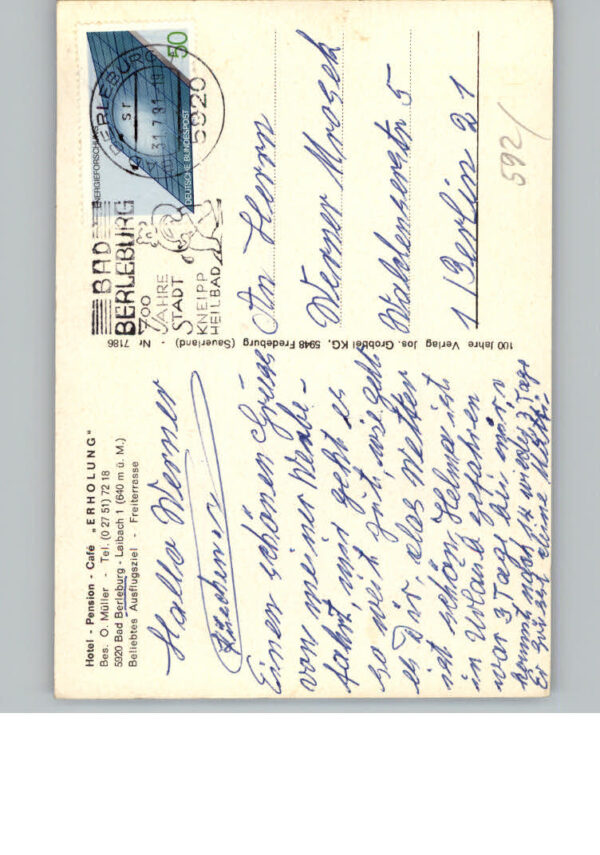 Hotel - Pension - Café „ERHOLUNG"
Bes. O. Müller - Tel. (0 27 51) 72 18
5920 Bad Berleburg - Laibach 1 (640 m ü. M.)
Beliebtes Ausflugsziel - Freiterrasse
Hallo Werner
Einen schönen Gruss
von meiner
fahrt, mir geht es
so weit gut, wie geht
es Dir das Wetter
ist schön, Helma ist
in Urlaub gefahren
war 3 Tage bei mir
kommt nach 14 wieder 3 Tage
Er grüsst deine
100 Jahre Verlag Jos. Grobbel KG, 5948 Fredeburg (Sauerland) - Nr 7186
BAD
BERLEBURG
700
JAHRE
STADT
KNEIPP
HEILBAD
BERLEBURG
31.7.81
5920
50
ENERGIEFORSCHUNG
DEUTSCHE BUNDESPOST
An Herrn
Werner Mrosek
Waldenserstr 5
1 Berlin 21
592/